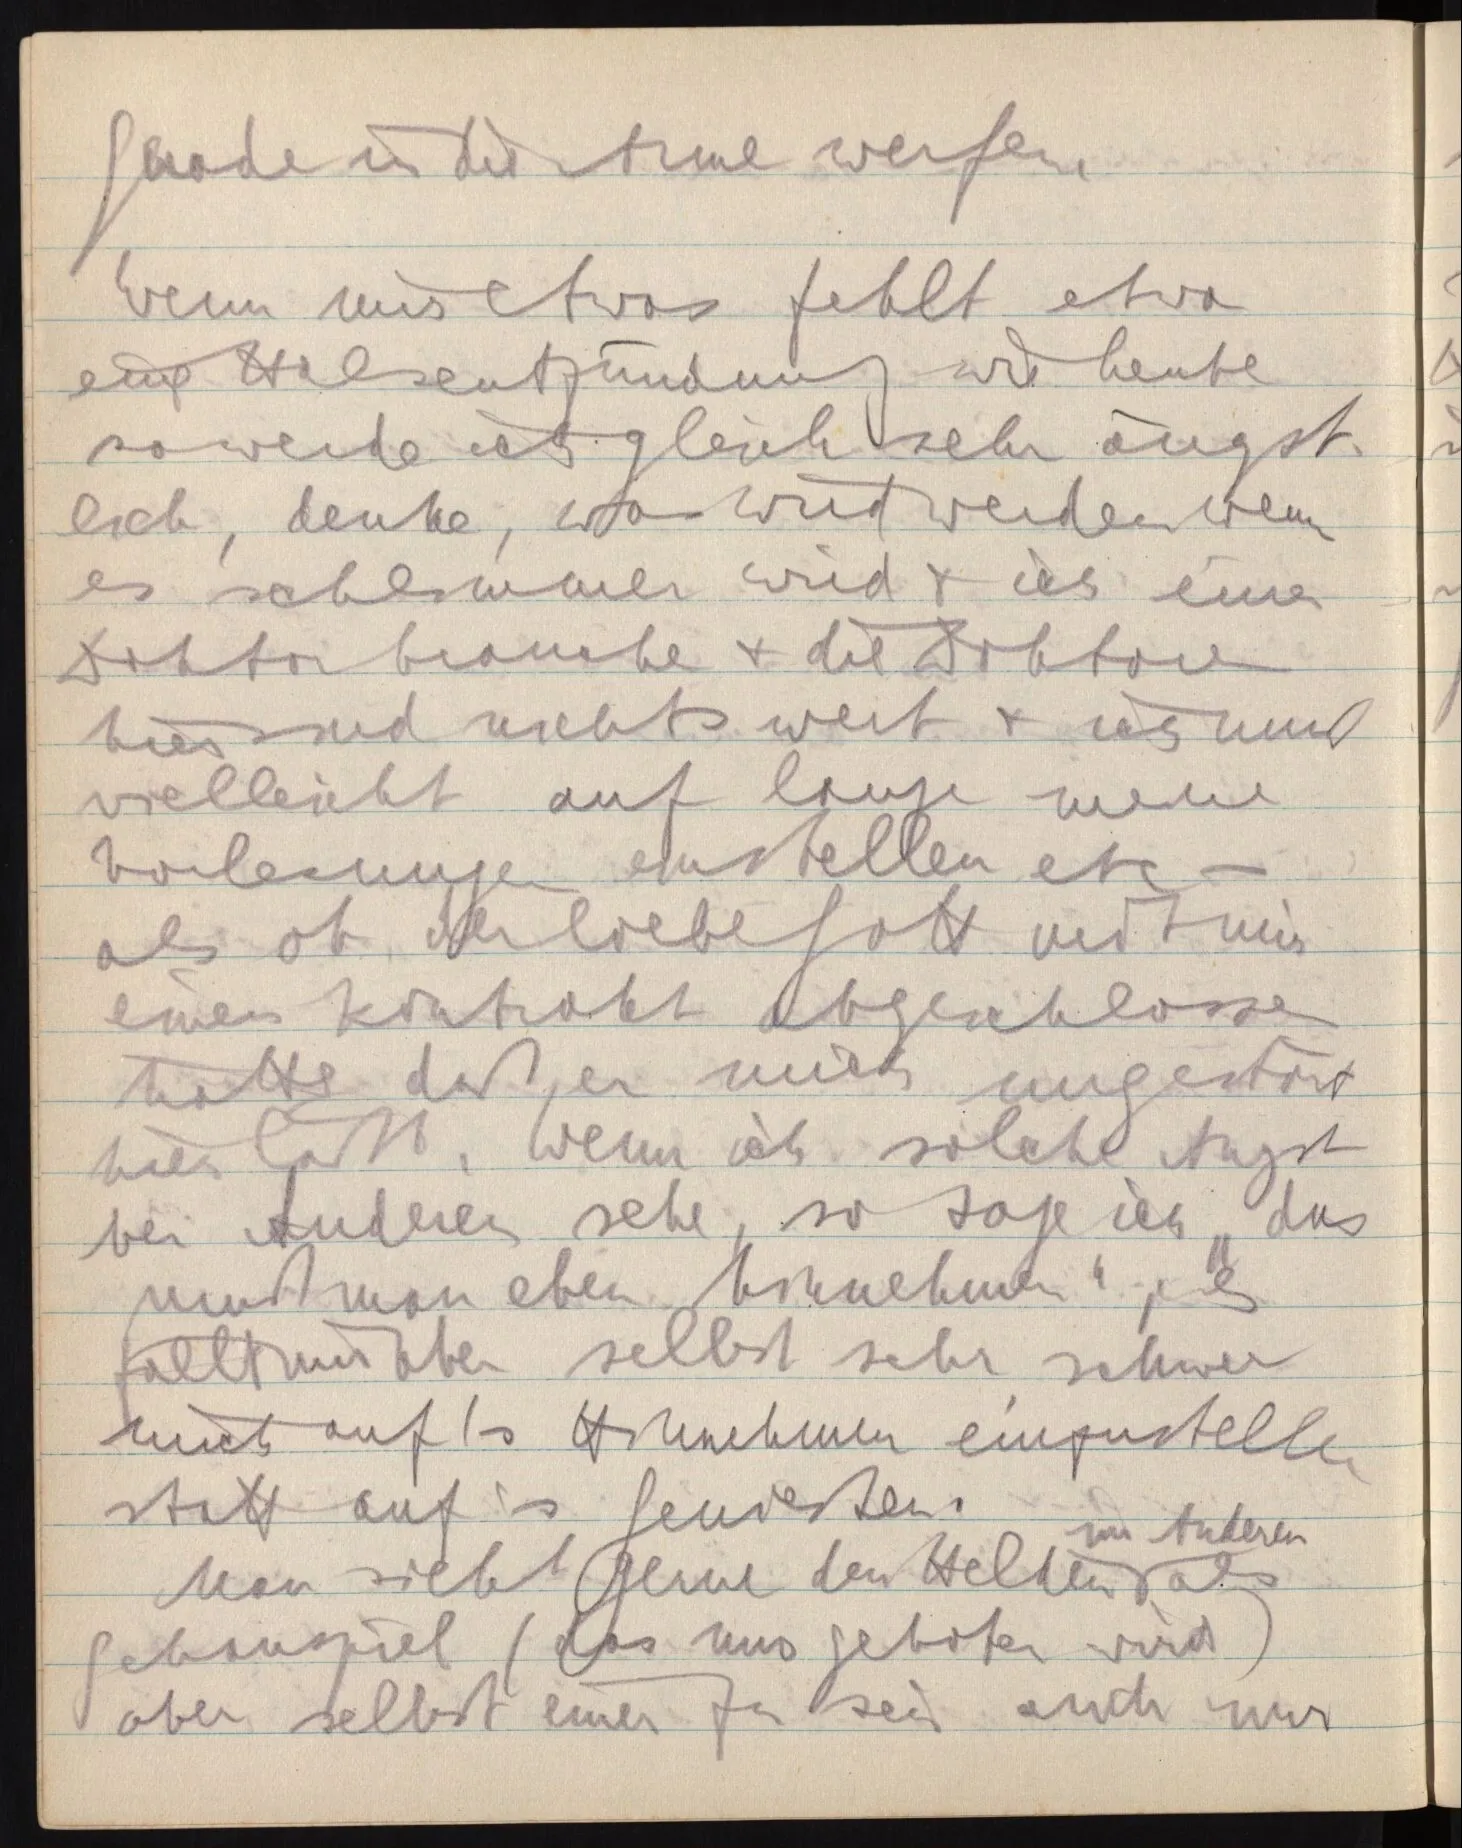 Gnade in die Arme werfen.
Wenn mir etwas fehlt etwa
eine Halsentzündung wie heute
so werde ich gleich sehr ängst-
lich, denke, was wird werden wenn
es schlimmer wird & ich einen
Doktor brauche & die Doktoren
hier sind nichts wert & ich muß
vielleicht auf lange meine
Vorlesungen einstellen etc –
als ob der liebe Gott mit mir
einen Kontrakt abgeschlossen
hätte daß er mich ungestört
hier läßt. Wenn ich solche Angst
bei Anderen sehe, so sage ich „das
muß man eben hinnehmen“, es
fällt mir aber selbst sehr schwer
mich auf's Hinnehmen einzustellen
statt auf's Genießen.
Man sieht gerne den Helden im Anderen als
Schauspiel (das uns geboten wird)
aber selbst einer zu sein auch nur